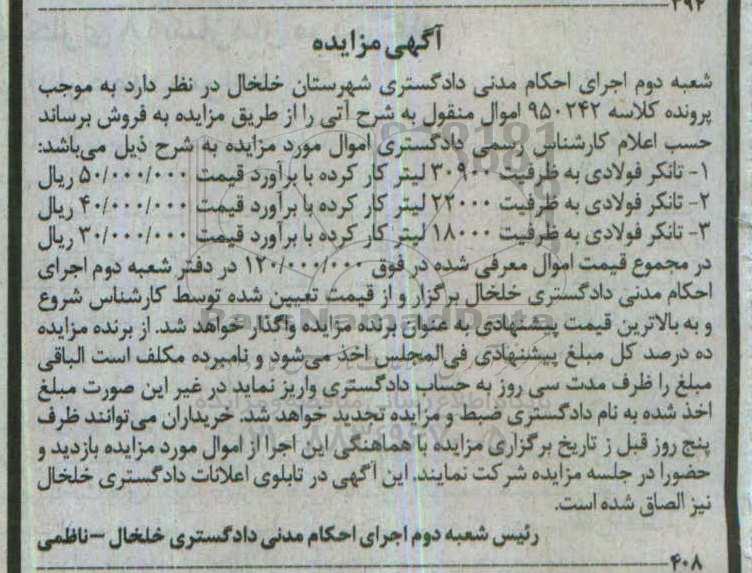 ۲۹۲
آگهی مزایده
شعبه دوم اجرای احکام مدنی دادگستری شهرستان خلخال در نظر دارد به موجب
پرونده کلاسه ۹۵۰۲۴۲ اموال منقول به شرح آتی را از طریق مزایده به فروش برساند
حسب اعلام کارشناس رسمی دادگستری اموال مورد مزایده به شرح ذیل می‌باشد:
۱- تانکر فولادی به ظرفیت ۳۰۹۰۰ لیتر کار کرده با برآورد قیمت ۵۰/۰۰۰/۰۰۰ ریال
۲- تانکر فولادی به ظرفیت ۲۲۰۰۰ لیتر کار کرده با برآورد قیمت ۴۰/۰۰۰/۰۰۰ ریال
۳- تانکر فولادی به ظرفیت ۱۸۰۰۰ لیتر کار کرده با برآورد قیمت ۳۰/۰۰۰/۰۰۰ ریال
در مجموع قیمت اموال معرفی شده در فوق ۱۲۰/۰۰۰/۰۰۰ در دفتر شعبه دوم اجرای
احکام مدنی دادگستری خلخال برگزار و از قیمت تعیین شده توسط کارشناس شروع
و به بالاترین قیمت پیشنهادی به عنوان برنده مزایده واگذار خواهد شد. از برنده مزایده
ده درصد کل مبلغ پیشنهادی فی‌المجلس اخذ می‌شود و نامبرده مکلف است الباقی
مبلغ را ظرف مدت سی روز به حساب دادگستری واریز نماید در غیر این صورت مبلغ
اخذ شده به نام دادگستری ضبط و مزایده تجدید خواهد شد. خریداران می‌توانند ظرف
پنج روز قبل ز تاریخ برگزاری مزایده با هماهنگی این اجرا از اموال مورد مزایده بازدید و
حضورا در جلسه مزایده شرکت نمایند. این آگهی در تابلوی اعلانات دادگستری خلخال
نیز الصاق شده است.
رئیس شعبه دوم اجرای احکام مدنی دادگستری خلخال –ناظمی
۴۰۸
ParsNamadData